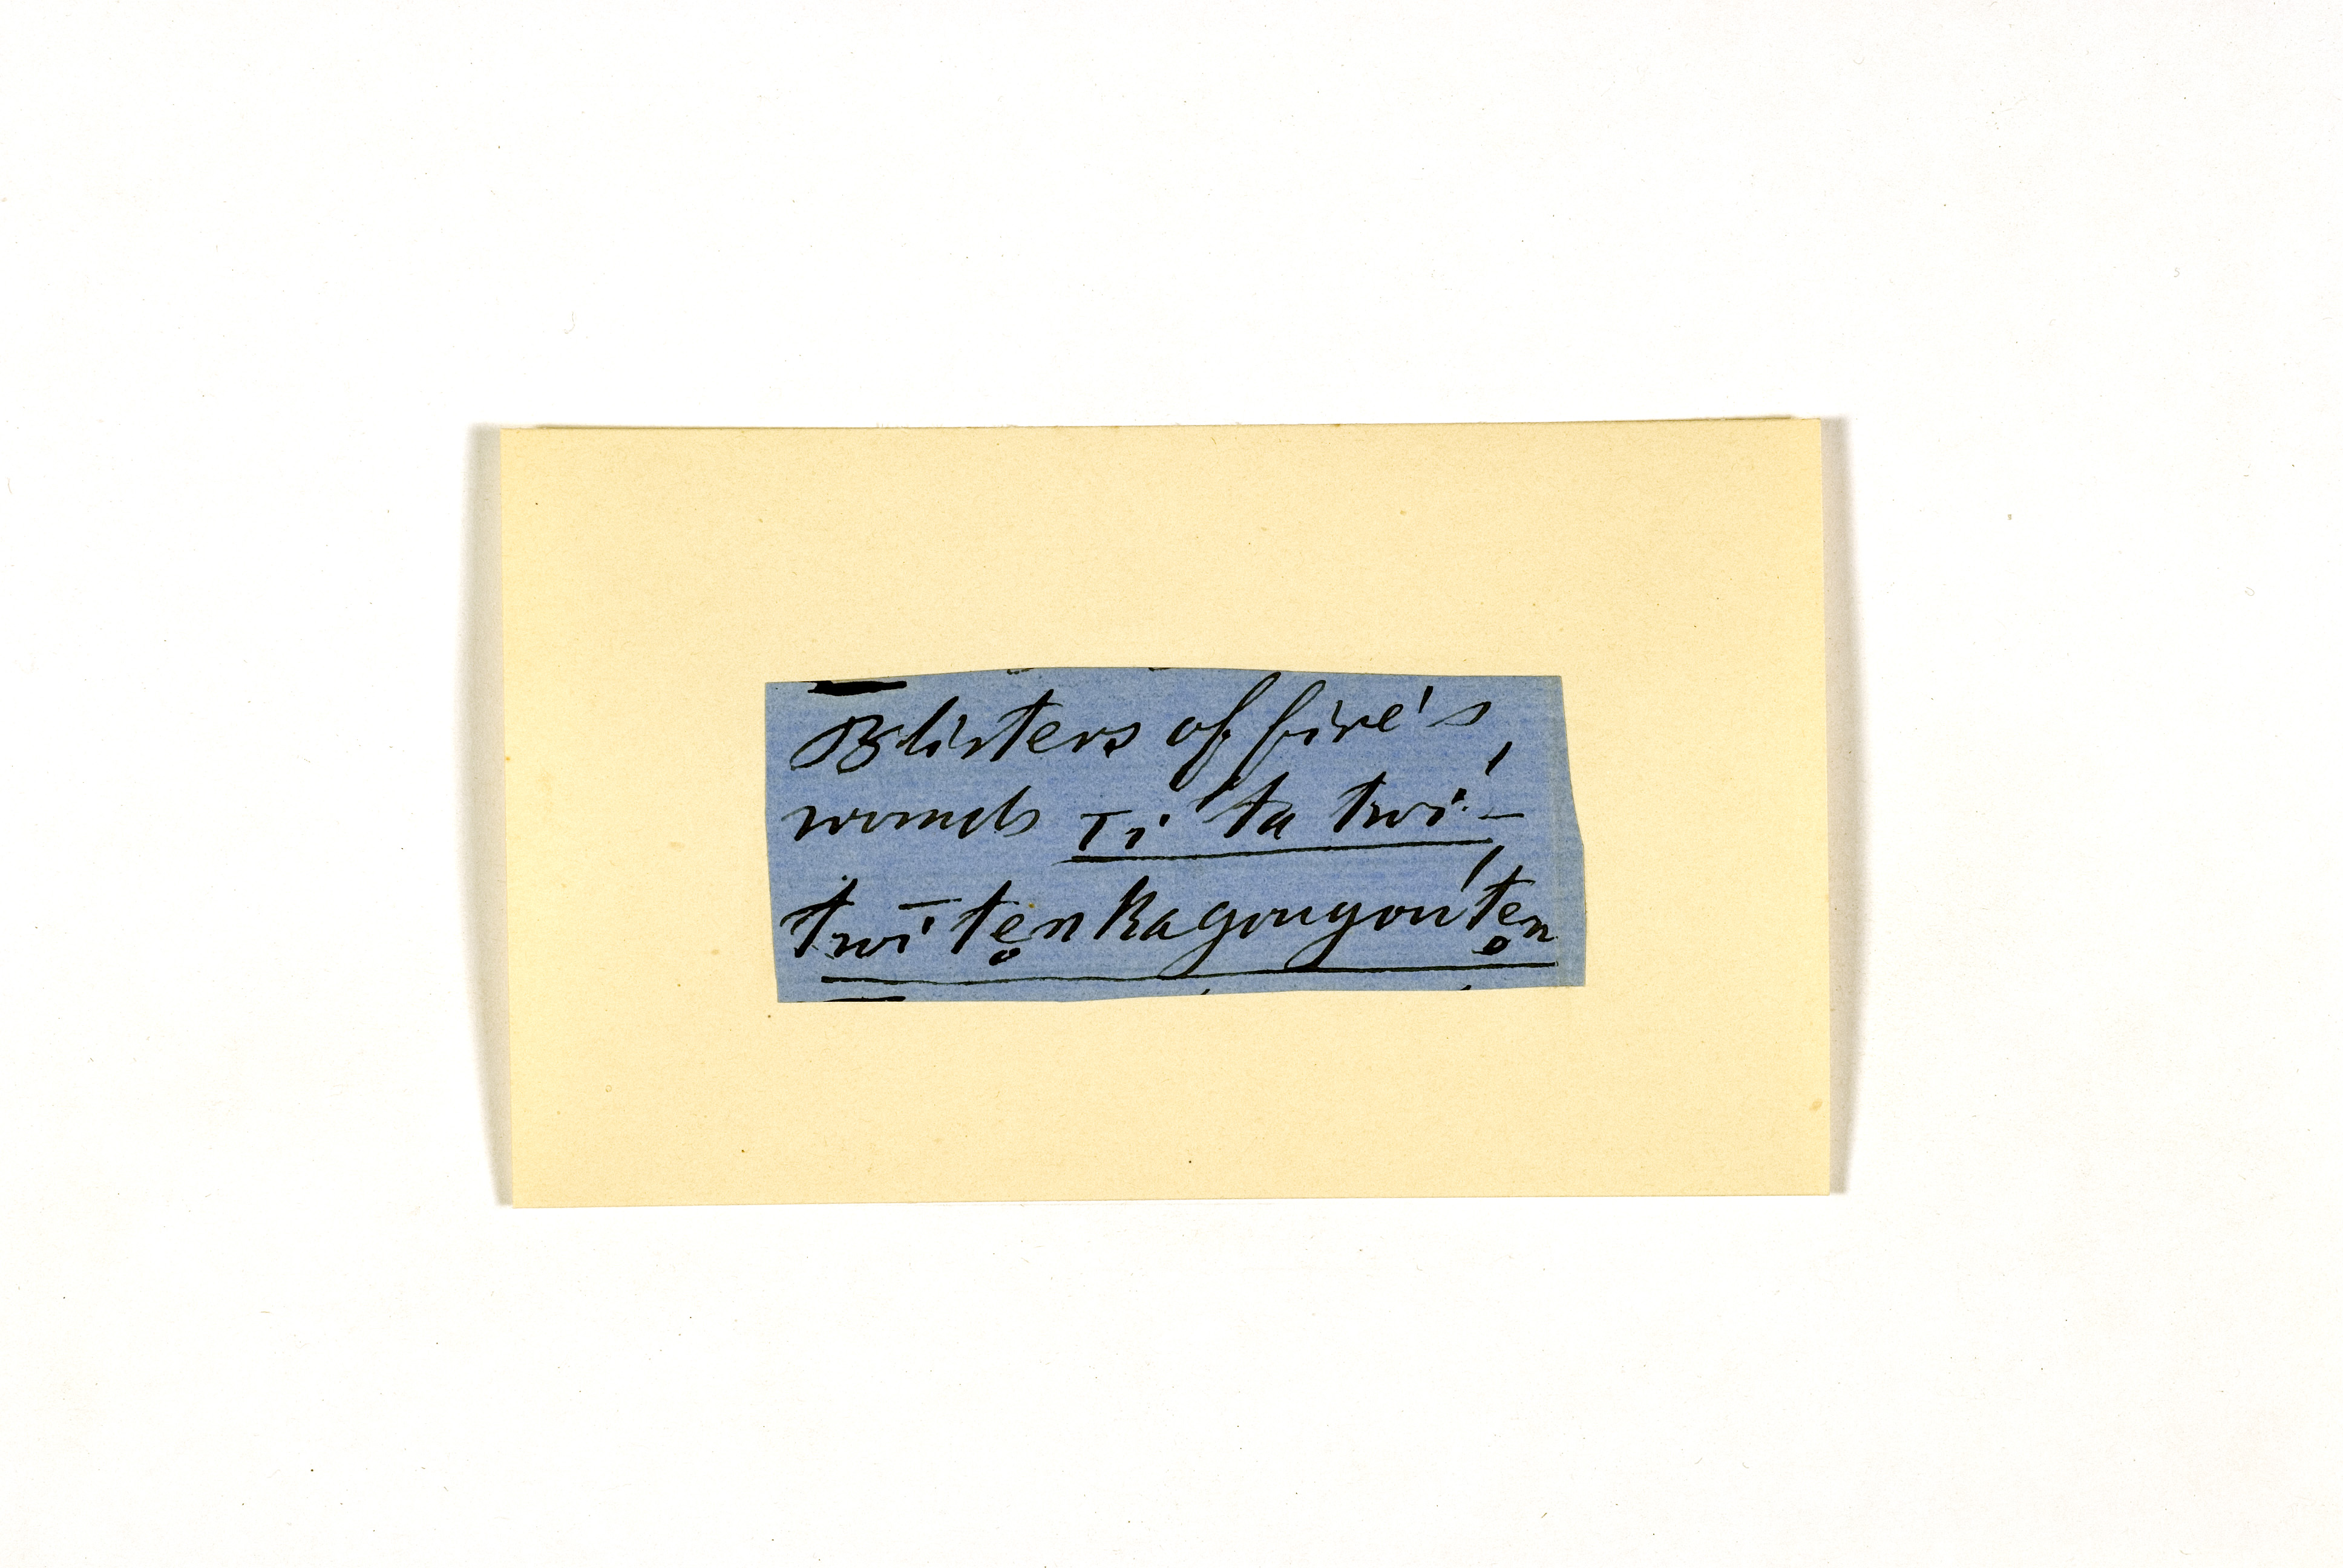 Blisters of fire's
wounds Ti'ta twi'-
twī tẹn kagougou'tẹn